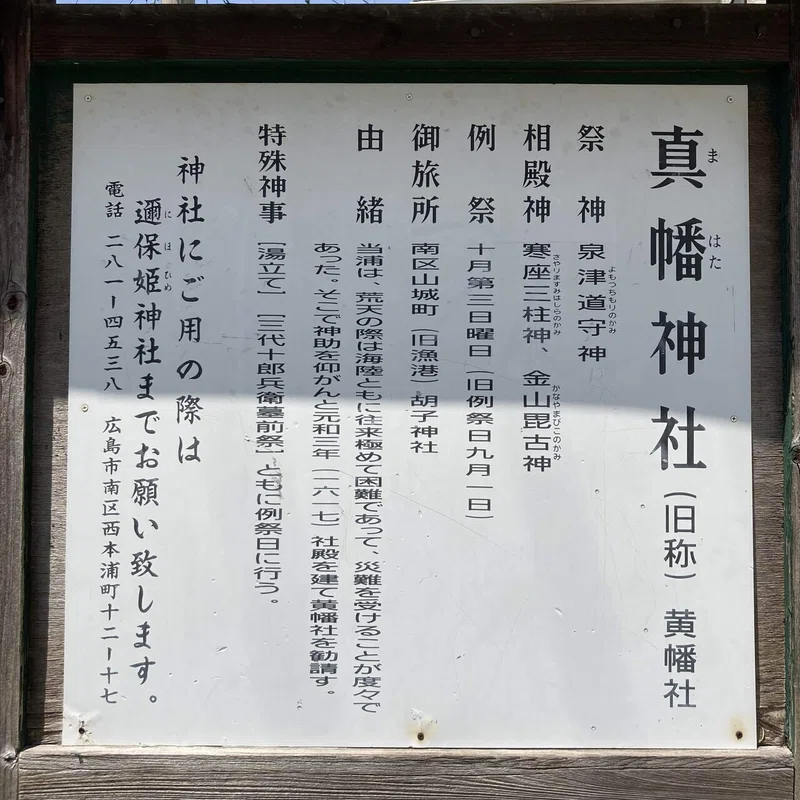 真幡神社（旧称）黄幡社
まはた
祭神 泉津道守神
よもつちもりのかみ
相殿神 寒座三柱神、金山毘古神
さやりますみはしらのかみ かなやまびこのかみ
例祭 十月第三日曜日（旧例祭日九月一日）
御旅所 南区山城町（旧漁港）胡子神社
由緒 当浦は、荒天の際は海陸ともに往来極めて困難であって、災難を受けることが度々で
あった。そこで神助を仰がんと元和三年（一六一七）社殿を建て黄幡社を勧請す。
特殊神事 【湯立て】【三代十郎兵衛墓前祭】ともに例祭日に行う。
神社にご用の際は
邇保姫神社までお願い致します。
にほひめ
電話 二八一ー四五三八 広島市南区西本浦町十二ー十七